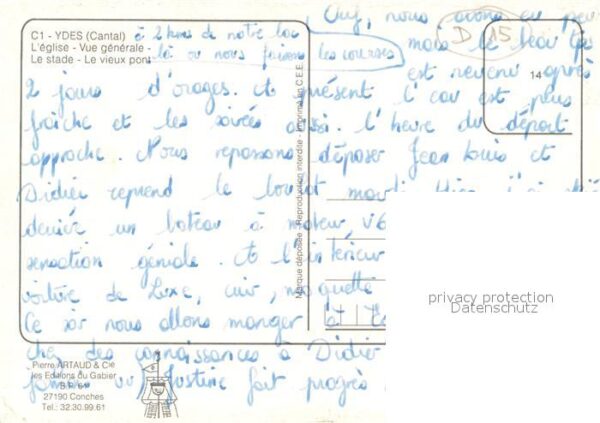 C1 - YDES (Cantal) à 2 kms de notre lac
L'église - Vue générale -
Le stade - Le vieux pont là ou nous faisons les courses
Ouf, nous avons eu peur
D 15
mais le beau
est revenu après
14
2 jours d'orages. et présent l'eau est plus
fraîche et les soirées aussi. L'heure du départ
approche. Nous repassons déposer Jean Louis et
Didier reprend le boulot mardi. Hier j'ai
derrière un bateau à moteur V6
sensation géniale. Et l'intérieur
voiture de Luxe, cuir, moquette
Ce soir nous allons manger
chez des connaissances à Didier
Justine fait progrès
Marque déposée - Reproduction interdite - Imprimé en C.E.E.
privacy protection
Datenschutz
Pierre ARTAUD & Cie
les Editions du Gabier
B.P. 64
27190 Conches
Tel.: 32.30.99.61